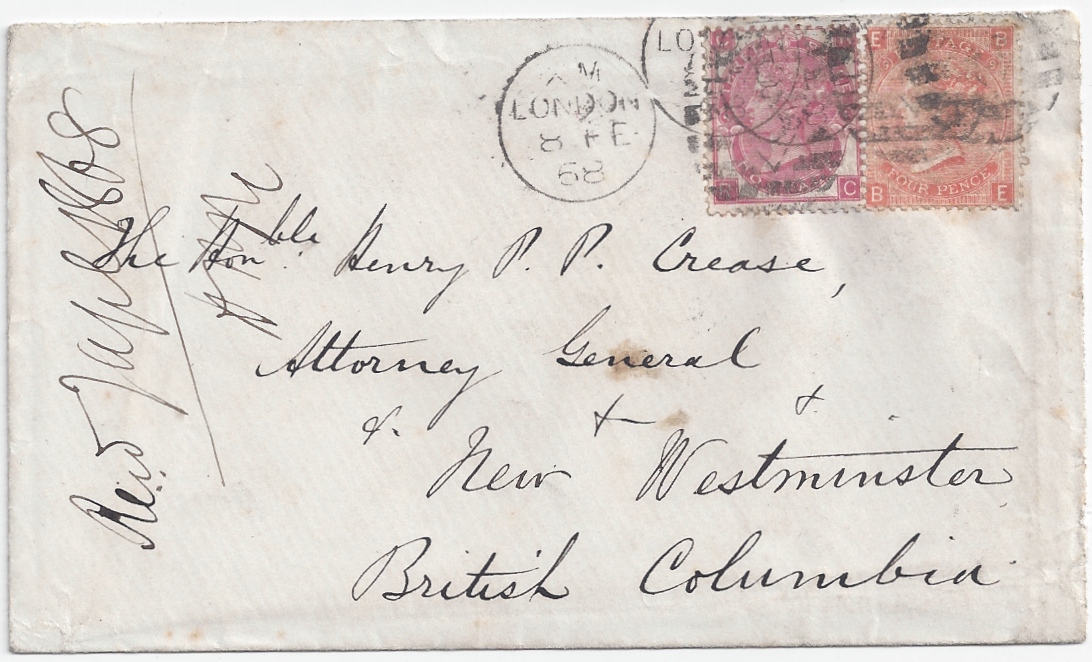 X M
LONDON
8 FE
68
LO
E B
FOUR PENCE
B E
C
The Honble. Henry P. P. Crease,
Attorney General
&. & &.
New Westminster
British Columbia
Recd